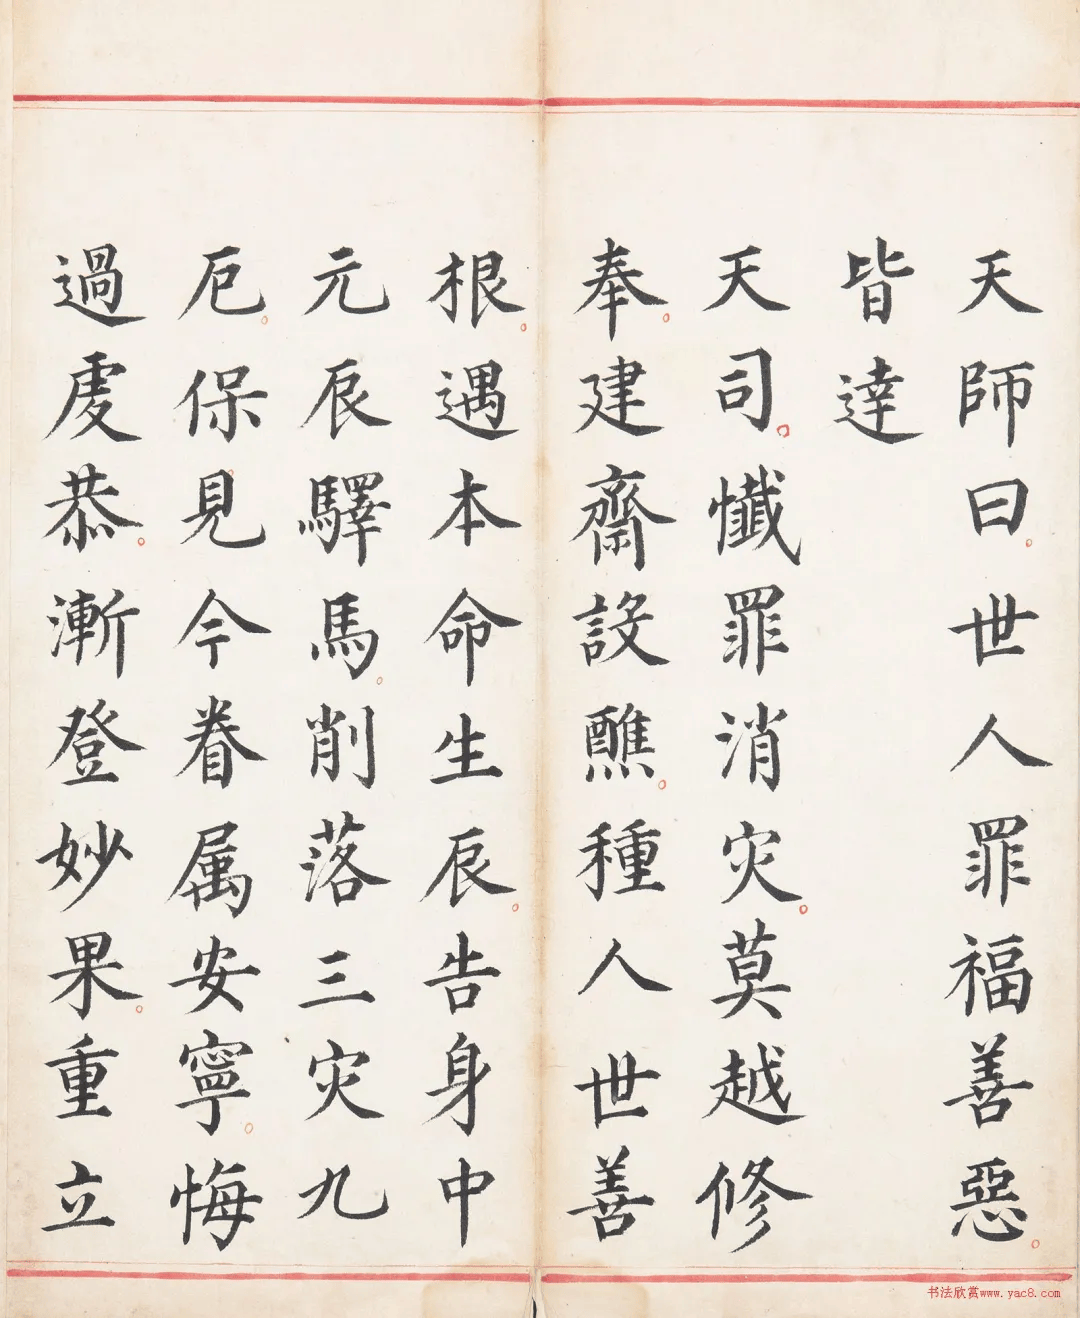 天師曰世人罪福善惡
皆達
天司懺罪消灾莫越修
奉建齋設醮種人世善
根遇本命生辰告身中
元辰驛馬削落三灾九
厄保見今眷属安寧悔
過虔恭漸登妙果重立
书法欣赏www.yac8.com